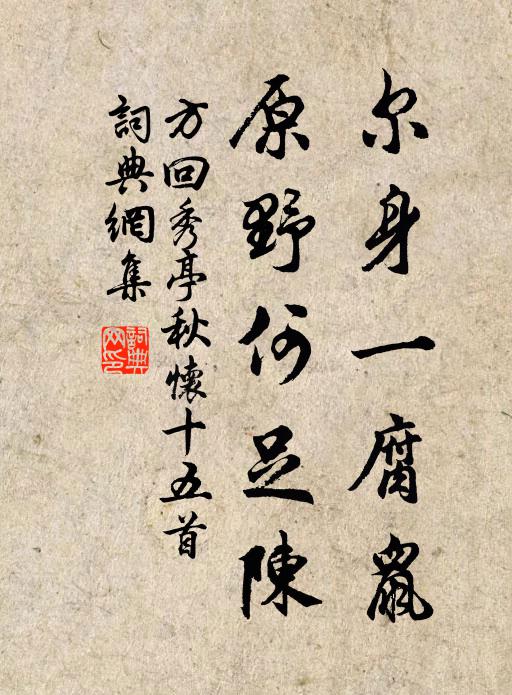 尔身一腐鼠
原野何足陳
方回秀亭秋懷十五首
詞典網集
詞典网印